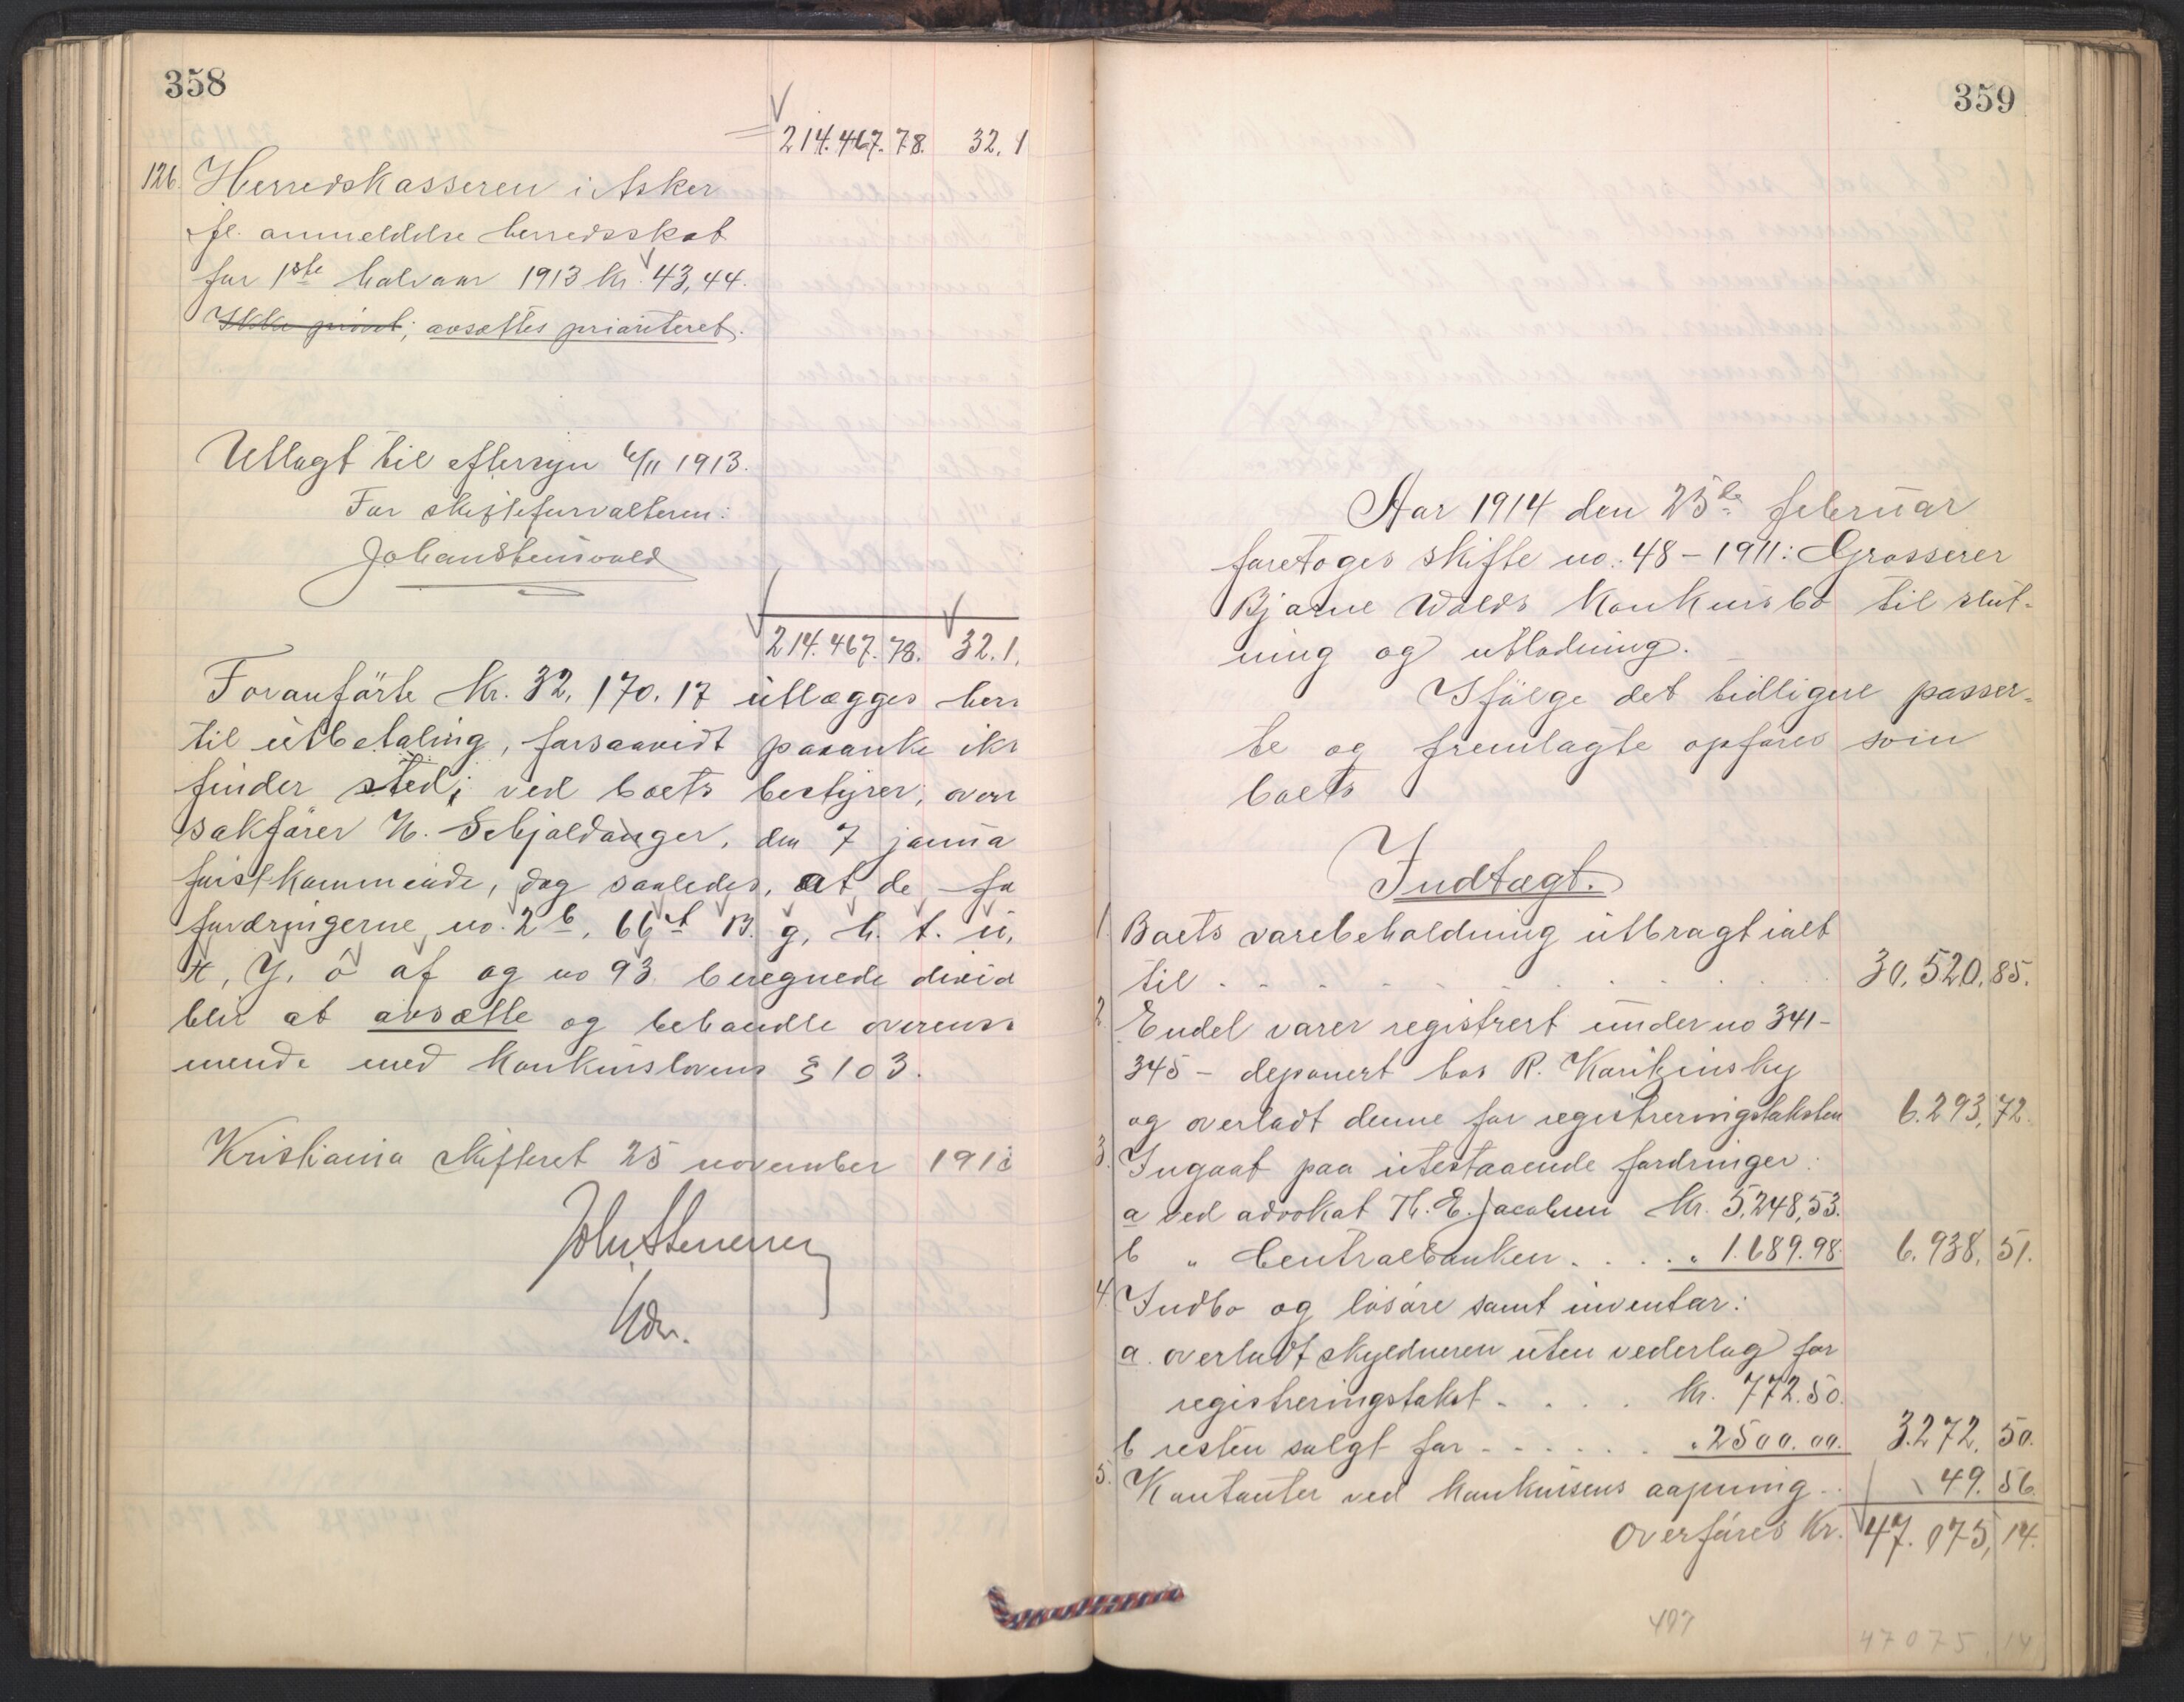 358
214.467.78. 32.1
126. Herredskasseren i Asker
fl. anmeldelse herredsskat
for 1ste halvaar 1913 kr. 43,44.
Ikke priort; avsættes prioriteret.
Utlagt til eftersyn 6/11 1913.
For skifteforvalteren:
Johan Stenvold
214.467.78. 32.1.
Foranførte kr. 32,170.17 utlægges her
til utbetaling, forsaavidt paaanke ik
finder sted, ved boets bestyrer, over
sakfører H. Schjoldager, den 7 janua
førstkommende, dog saaledes, at de fo
fordringerne no. 2 b, 66 f B. g, h. t. u.
x, y, ø af og no 93 beregnede divid
blir at avsætte og behandle overenss
mende med konkurslovens § 103.
Kristiania skifteret 25 november 191
359
Aar 1914 den 25de februar
foretoges skifte no. 48 – 1911: Grosserer
Bjarne Wolds konkursbo til slut-
ning og utlodning.
Ifølge det tidligere passer-
te og fremlagte opføres som
boets
Indtægt.
1. Boets varebeholdning utbragt ialt
til . . . . . . . . . 30.520,85.
2. Endel varer registrert under no 341–
345 – deponert hos R.
og overladt denne for registreringstaksten 6.293,72.
3. Ingaat paa utestaaende fordringer:
a ved advokat Th. E. Jacobsen kr. 5,248,53.
b " Centralbanken . . . . " 1.689.98. 6.938,51.
4. Indbo og løsøre samt inventar:
a. overladt skyldneren uten vederlag for
registreringstakst . . . . kr. 772.50.
b resten solgt for . . . . . . " 2500.00. 3.272,50.
5. Kontanter ved konkursens aapning . . 49.56.
Overføres kr. 47.075,14.
497
47075.14